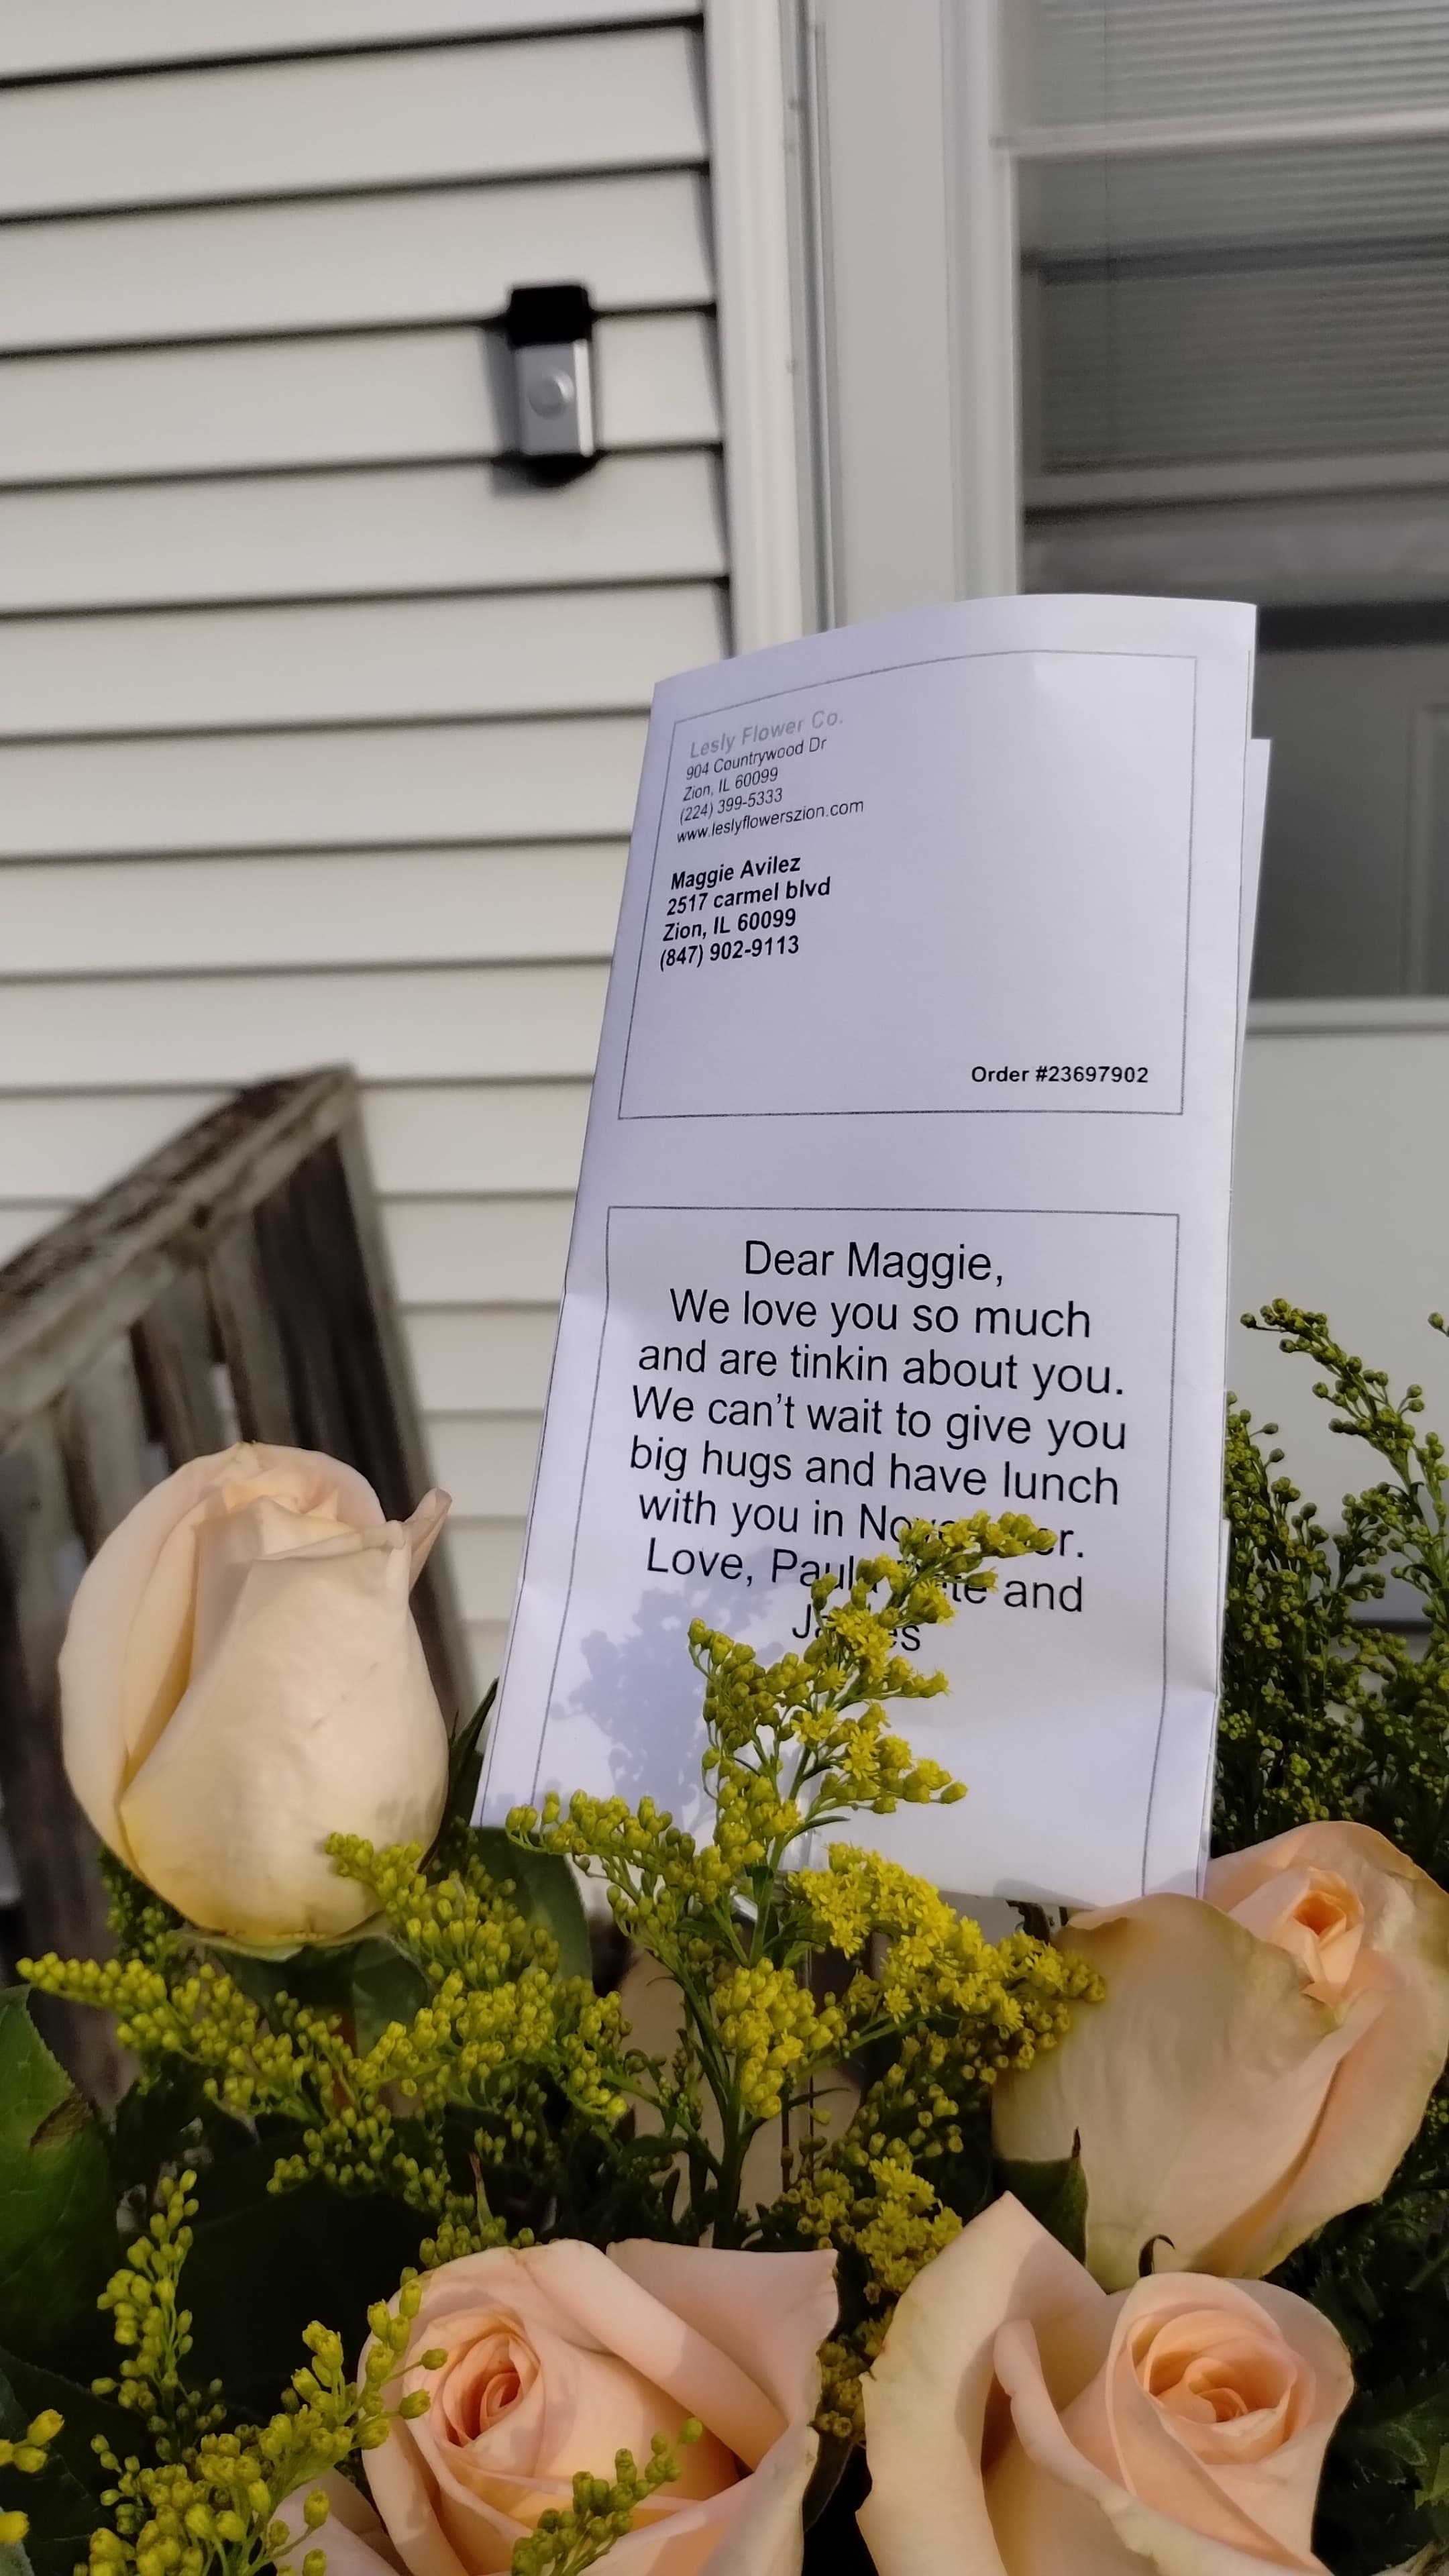 Lesly Flower Co.
904 Countrywood Dr
Zion, IL 60099
(224) 399-5333
www.leslyflowerszion.com
Maggie Avilez
2517 carmel blvd
Zion, IL 60099
(847) 902-9113
Order #23697902
Dear Maggie,
We love you so much
and are tinkin about you.
We can't wait to give you
big hugs and have lunch
with you in November.
Love, and